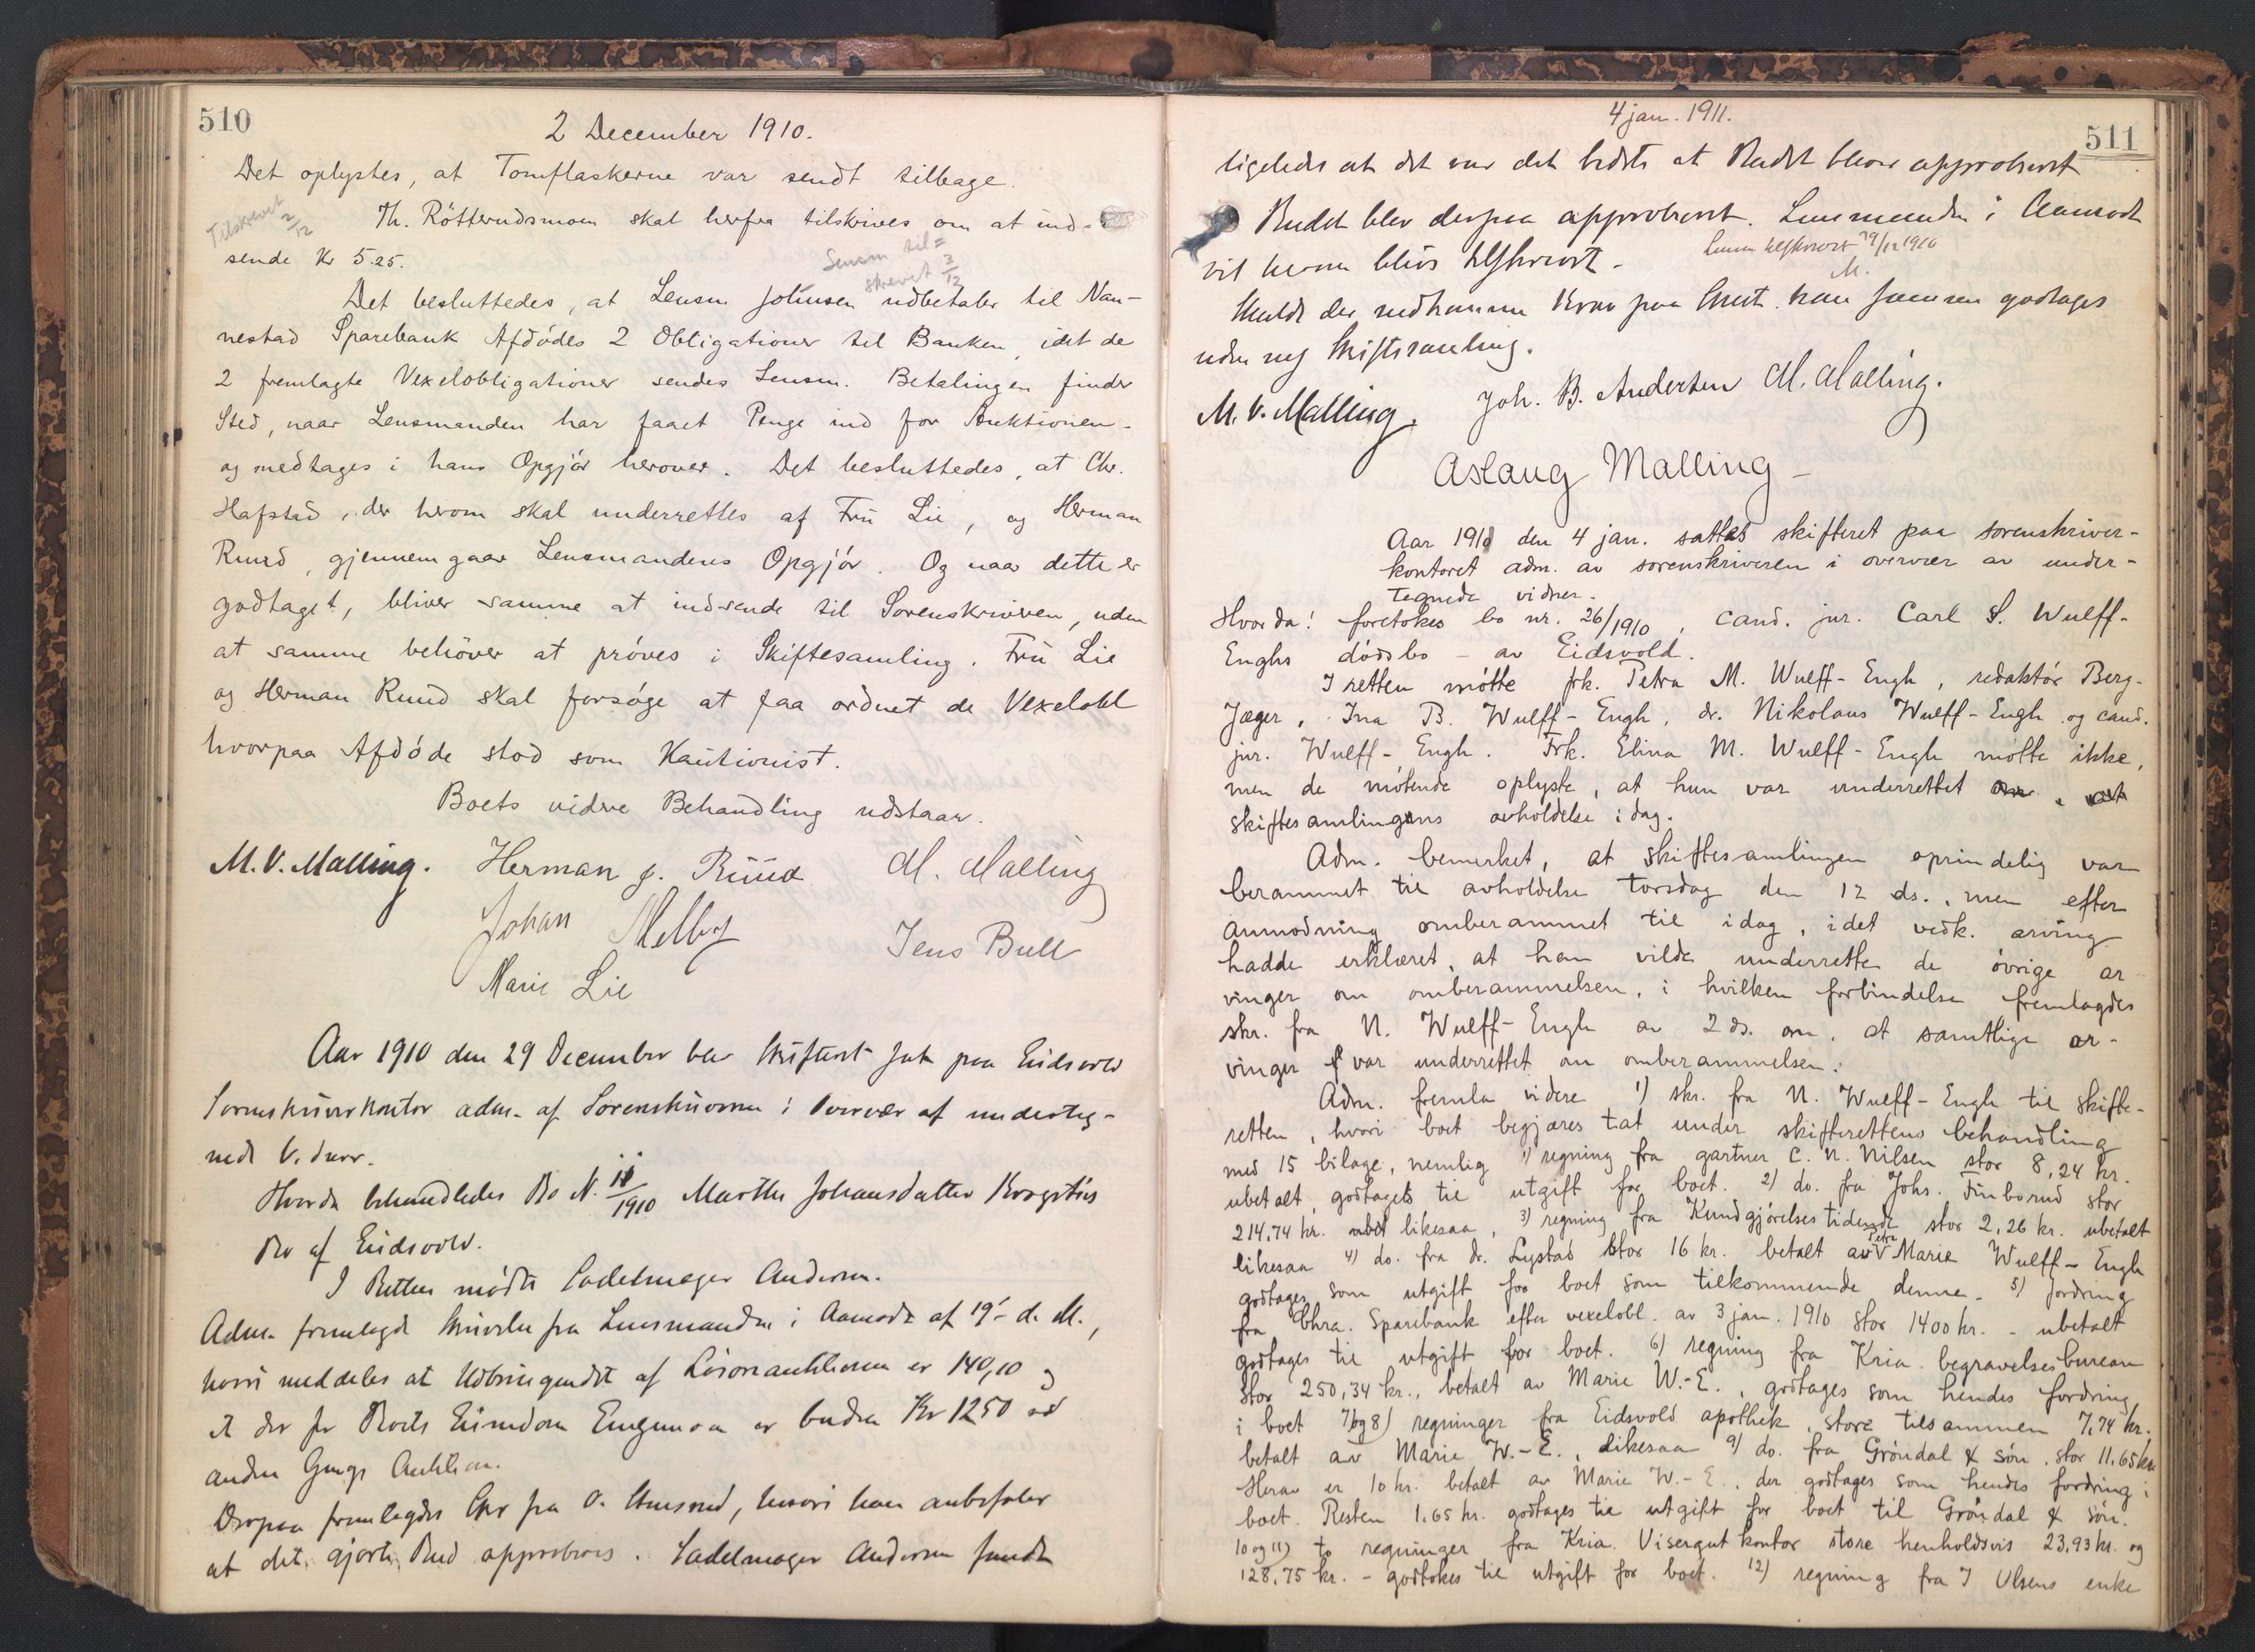 510
2 December 1910.
Det oplystes, at Tomflaskerne var sendt tilbage.
Tilskrevet 2/12
Th. Rötterudsmoen skal herfra tilskrives om at ind-
sende Kr 5.25.
Lensm til=
skrevet 3/12
Det besluttedes, at Lensm Johnsen udbetaler til Nan-
nestad Sparebank Afdödes 2 Obligationer til Banken, idet de
2 fremlagte Vexelobligationer sendes Lensm. Betalingen finder
Sted, naar Lensmanden har faaet Penge ind for Auktionen -
og medtages i hans Opgjör herover. Det besluttedes, at Chr.
Hafstad, der herom skal underrettes af Fru Lie, og Herman
Ruud, gjennemgaar Lensmandens Opgjör. Og naar dette er
godtaget, bliver samme at indsende til Sorenskriveren, uden
at samme behöver at pröves i Skiftesamling. Fru Lie
og Herman Ruud skal forsöge at faa ordnet de Vexelobl
hvorpaa Afdöde stod som Kautionist.
Boets videre Behandling udstaar.
M. V. Malling. Herman J. Ruud M. Malling
Johan Melby Jens Bull
Marie Lie
Aar 1910 den 29 December blev Skifteret sat paa Eidsvold
Sorenskriverkontor adm. af Sorenskriveren i Overvær af underteg-
nede Vidner.
Hvorda behandledes Bo N. 11/1910 Marthe Johansdatter
Bo af Eidsvold.
I Retten mödte Sadelmager Andersen.
Adm. fremlagde Skrivelse fra Lensmanden i Aamodt af 19- d. M.,
hvori meddeles at Udbringendet af Lösöreauktionen er 140,10 og
at der for Boets Eiendom er buden Kr 1250 ved
anden Gangs Auktion.
Derpaa fremlagdes Skr fra O. hvori han anbefaler
at det gjorte Bud approberes. Sadelmager Andersen fandt
4 jan. 1911.
511
ligeledes at det var det bedste at Budet blev approberet
Budet blev derpaa approberet. Lensmanden i Aamodt
vil herom blive tilskrevet - Lensm tilskrevet 29/12 1910
M.
Skulde der indkomme Krav paa kan samme godtages
uden ny Skiftesamling.
M. V. Malling. Joh. B. Andersen M. Malling.
Aslaug Malling -
Aar 1911 den 4 jan. sattes skifteret paa sorenskriver-
kontoret adm. av sorenskriveren i overvær av under-
tegnede vidner.
Hvorda: foretokes bo nr. 26/1910, cand. jur. Carl S. Wulff-
Enghs dödsbo - av Eidsvold.
I retten mötte frk. Petra M. Wulff-Engh, redaktör Berg-
Jæger, Ina B. Wulff-Engh, dr. Nikolaus Wulff-Engh og cand.
jur. Wulff-Engh. Frk. Elina M. Wulff-Engh mötte ikke,
men de mötende oplyste, at hun var underrettet om
skiftesamlingens avholdelse idag.
Adm. bemerket, at skiftesamlingen oprindelig var
berammet til avholdelse torsdag den 12 ds., men efter
anmodning omberammet til idag, idet vedk. arving
hadde erklæret, at han vilde underrette de övrige ar
vinger om omberammelsen, i hvilken forbindelse fremlagdes
skr. fra N. Wulff-Engh av 2 ds. om, at samtlige ar-
vinger var underrettet om omberammelsen.
Adm. fremla videre 1) skr. fra N. Wulff-Engh til skifte-
retten, hvori boet begjæres tat under skifterettens behandling
med 15 bilage, nemlig 1) regning fra gartner C. N. Nilsen stor 8,24 kr.
ubetalt, godtages til utgift for boet. 2) do. fra Johs. Finborud stor
214,74 kr. likesaa, 3) regning fra Kundgjörelsestidende stor 2,26 kr. ubetalt
likesaa 4) do. fra dr. Lystad stor 16 kr. betalt av Petra Marie Wulff-Engh
godtages som utgift for boet som tilkommende denne. 5) fordring
fra Chra. Sparebank efter vexelobl. av 3 jan. 1910 stor 1400 kr. - ubetalt
godtages til utgift for boet. 6) regning fra Kria. begravelsesbureau
stor 250,34 kr., betalt av Marie W.-E., godtages som hendes fordring
i boet 7) og 8) regninger fra Eidsvold apothek, store tilsammen 7,74 kr.
betalt av Marie W.-E., likesaa 9) do. fra Gröndal & sön, stor 11,65 kr.
Herav er 10 kr. betalt av Marie W.-E., der godtages som hendes fordring i
boet. Resten 1.65 kr. godtages til utgift for boet til Gröndal & sön.
10 og 11) to regninger fra Kria. Visergut kontor store henholdsvis 23,93 kr. og
128,75 kr. - godtokes til utgift for boet. 12) regning fra I Olsens enke